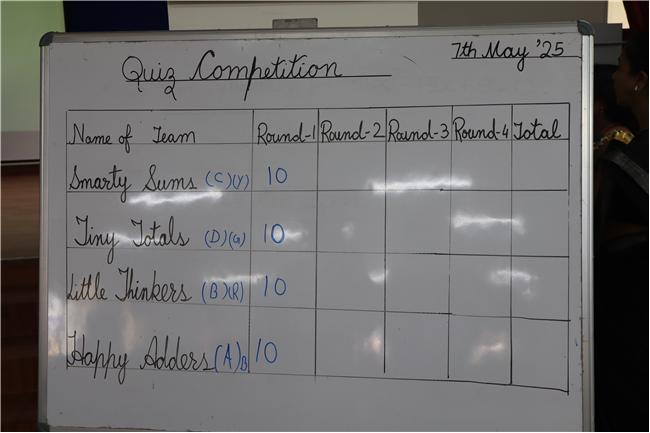 Quiz Competition
7th May '25
Name of Team Round-1 Round-2 Round-3 Round-4 Total
Smarty Sums (C)(Y) 10
Tiny Totals (D)(G) 10
Little Thinkers (B)(R) 10
Happy Adders (A)B 10